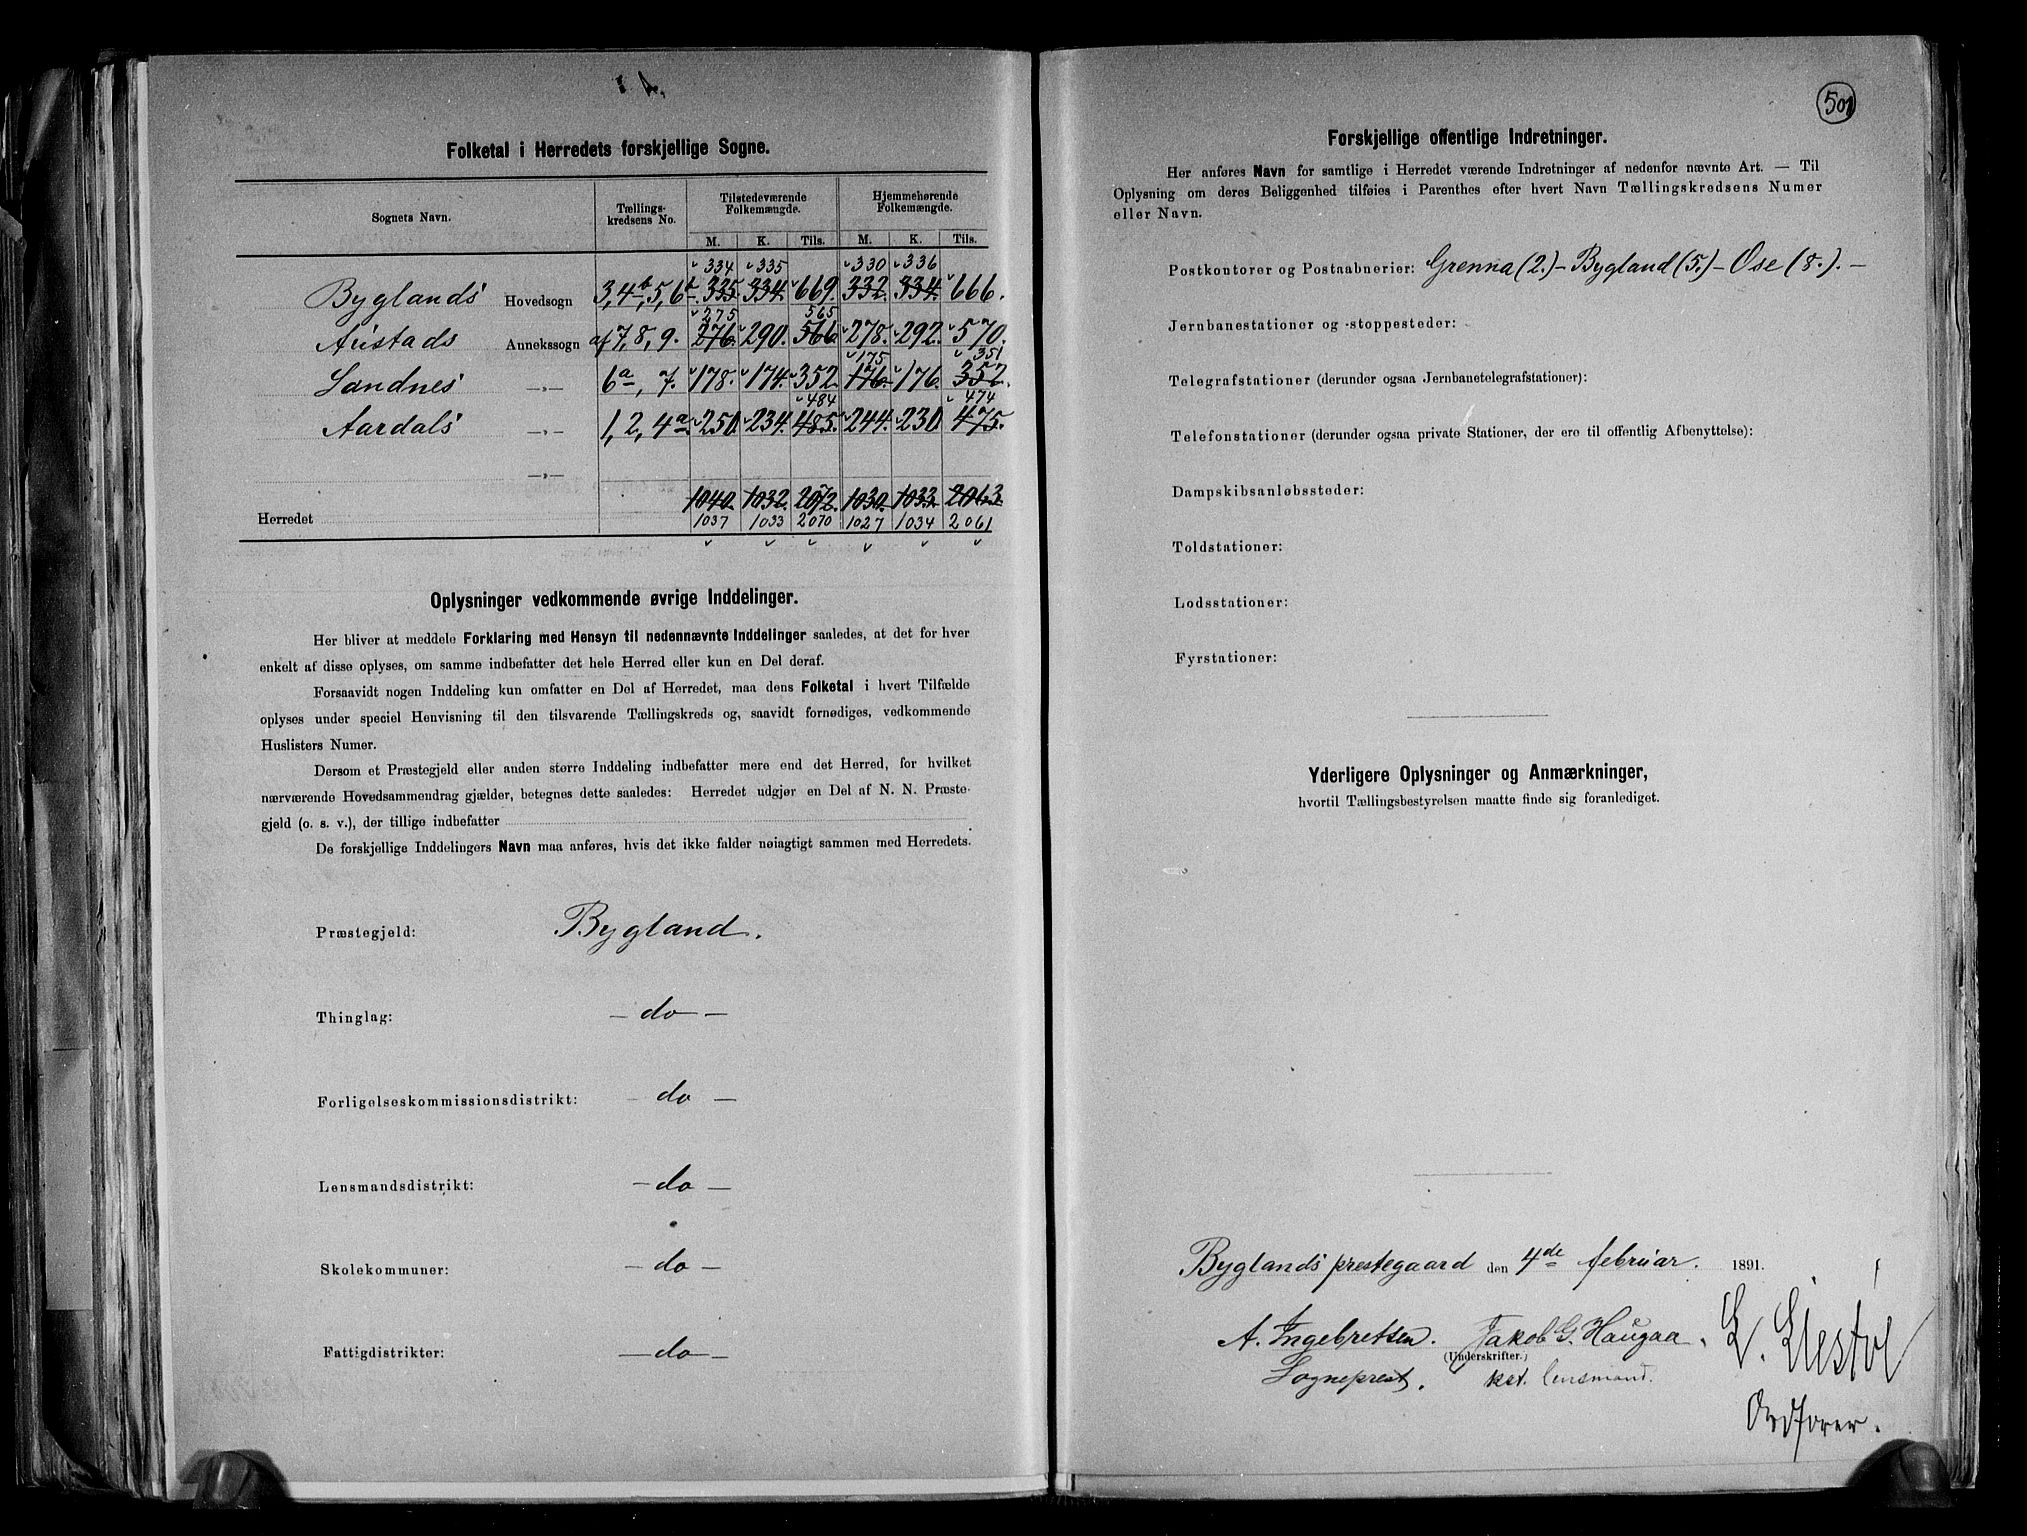 Folketal i Herredets forskjellige Sogne.
Sognets Navn. Tællings-kredsens No. Tilstedeværende Folkemængde. Hjemmehørende Folkemængde.
M. K. Tils. M. K. Tils.
334 335 330 336
Byglands Hovedsogn 3, 4b, 5, 6b 335 334 669. 332 334 666.
275 565
Austads Annekssogn af 7, 8, 9. 276 290. 566 278. 292. 570.
175 351
Sandnes —„— 6a, 7. 178. 174. 352. 176. 176. 352.
484 474
Aardals —„— 1, 2, 4a 250. 234. 485. 244. 230. 475.
—„—
1040. 1032. 2072. 1030. 1033. 2063
Herredet 1037 1033 2070 1027 1034 2061
Oplysninger vedkommende øvrige Inddelinger.
Her bliver at meddele Forklaring med Hensyn til nedennævnte Inddelinger saaledes, at det for hver
enkelt af disse oplyses, om samme indbefatter det hele Herred eller kun en Del deraf.
Forsaavidt nogen Inddeling kun omfatter en Del af Herredet, maa dens Folketal i hvert Tilfælde
oplyses under speciel Henvisning til den tilsvarende Tællingskreds og, saavidt fornødiges, vedkommende
Huslisters Numer.
Dersom et Præstegjeld eller anden større Inddeling indbefatter mere end det Herred, for hvilket
nærværende Hovedsammendrag gjælder, betegnes dette saaledes: Herredet udgjør en Del af N. N. Præste-
gjeld (o. s. v.), der tillige indbefatter
De forskjellige Inddelingers Navn maa anføres, hvis det ikke falder nøiagtigt sammen med Herredets.
Præstegjeld: Bygland.
Thinglag: — do —
Forligelseskommissionsdistrikt: — do —
Lensmandsdistrikt: — do —
Skolekommuner: — do —
Fattigdistrikter: — do —
501
Forskjellige offentlige Indretninger.
Her anføres Navn for samtlige i Herredet værende Indretninger af nedenfor nævnte Art. — Til
Oplysning om deres Beliggenhed tilføies i Parenthes efter hvert Navn Tællingskredsens Numer
eller Navn.
Postkontorer og Postaabnerier: Grenna (2.) — Bygland (5.) — Ose (8.). —
Jernbanestationer og -stoppesteder:
Telegrafstationer (derunder ogsaa Jernbanetelegrafstationer):
Telefonstationer (derunder ogsaa private Stationer, der ere til offentlig Afbenyttelse):
Dampskibsanløbssteder:
Toldstationer:
Lodsstationer:
Fyrstationer:
Yderligere Oplysninger og Anmærkninger,
hvortil Tællingsbestyrelsen maatte finde sig foranlediget.
Byglands prestegaard den 4de februar. 1891.
A. Ingebretsen. Jakob G. Haugaa. L. Liestøl
(Underskrifter.)
Sogneprest. kst. lensmand.
Ordfører.